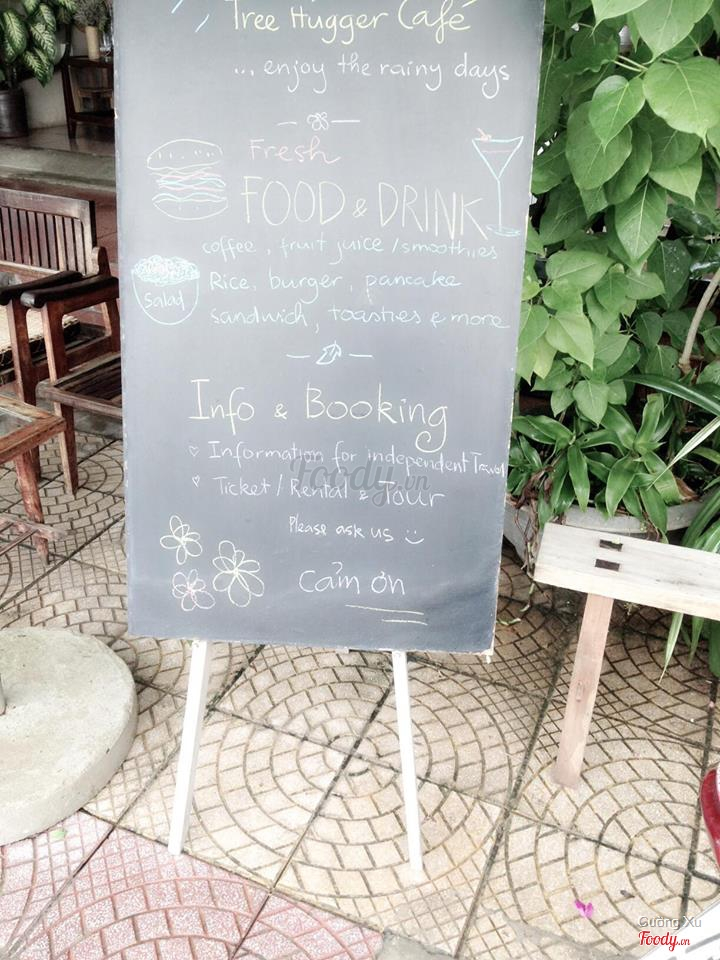 Tree Hugger Café
... enjoy the rainy days
Fresh
FOOD & DRINK
coffee, fruit juice / smoothies
Salad
Rice, burger, pancake
sandwich, toasties & more
Info & Booking
Information for independent Travel
Ticket / Rental & Tour
Please ask us
Cảm ơn
Foody.vn
Cường Xu
Foody.vn